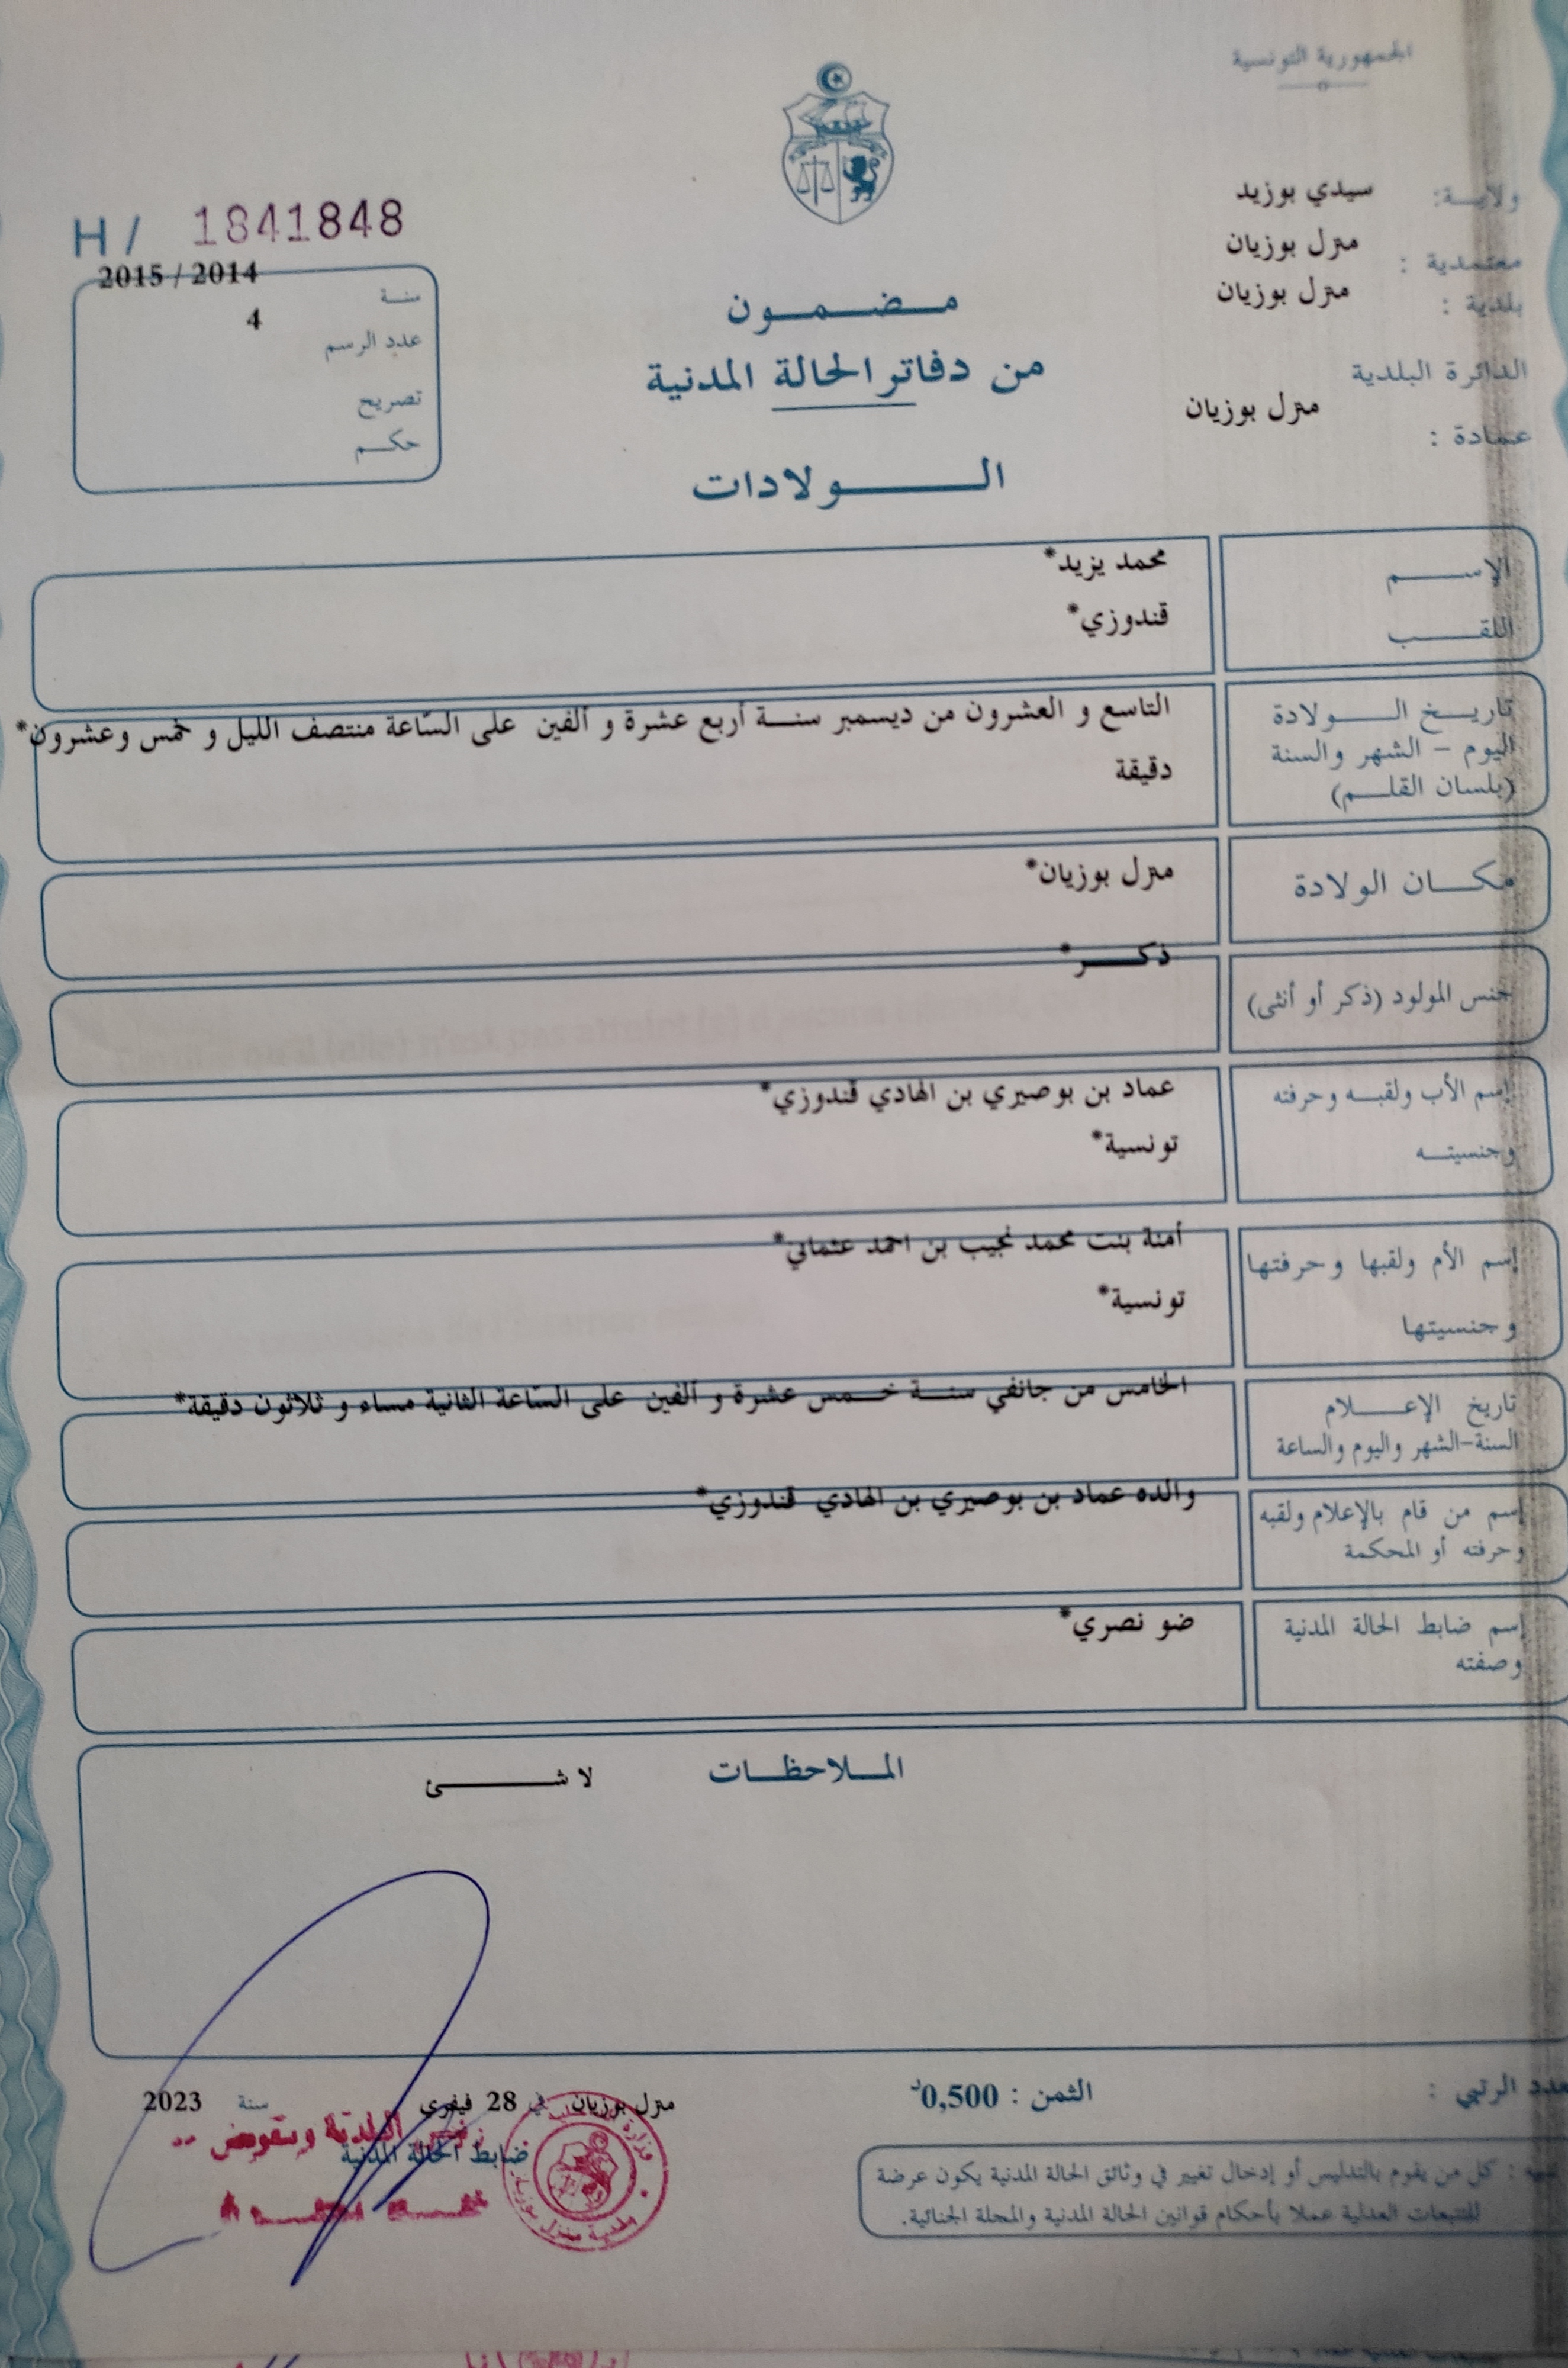 الجمهورية التونسية
ولايــة: سيدي بوزيد
معتمدية : منزل بوزيان
بلدية : منزل بوزيان
الدائرة البلدية
منزل بوزيان
عمادة :
H / 1841848
2015 / 2014
سنــة
4
عدد الرسم
تصريح
حكــم
مـضـمـون
من دفاتر الحالة المدنية
الــولادات
الإســـم محمد يزيد*
اللقـــب قندوزي*
تاريــخ الــولادة التاسع و العشرون من ديسمبر سنــة أربع عشرة و ألفين على السّاعة منتصف الليل و خمس وعشرون*
اليوم - الشهر والسنة دقيقة
(بلسان القلــم)
مكــان الولادة منزل بوزيان*
جنس المولود (ذكر أو أنثى) ذكـــر*
إسم الأب ولقبــه وحرفته عماد بن بوصيري بن الهادي قندوزي*
وجنسيتــه تونسية*
إسم الأم ولقبها وحرفتها أمنة بنت محمد نجيب بن احمد عثماني*
وجنسيتها تونسية*
تاريخ الإعــلام الخامس من جانفي سنــة خــمس عشرة و ألفين على السّاعة الثانية مساء و ثلاثون دقيقة*
السنة-الشهر واليوم والساعة
إسم من قام بالإعلام ولقبه والده عماد بن بوصيري بن الهادي قندوزي*
وحرفته أو المحكمة
إسم ضابط الحالة المدنية ضو نصري*
وصفته
المــلاحظــات لا شـــئ
عدد الرتبي :
الثمن : 0,500د
منزل بوزيان في 28 فيفري سنة 2023
ضابط الحالة المدنية
رئيس البلدية وبتفويض
بلدية منزل بوزيان
تنبيه : كل من يقوم بالتدليس أو إدخال تغيير في وثائق الحالة المدنية يكون عرضة
للتتبعات العدلية عملا بأحكام قوانين الحالة المدنية والمجلة الجنائية.